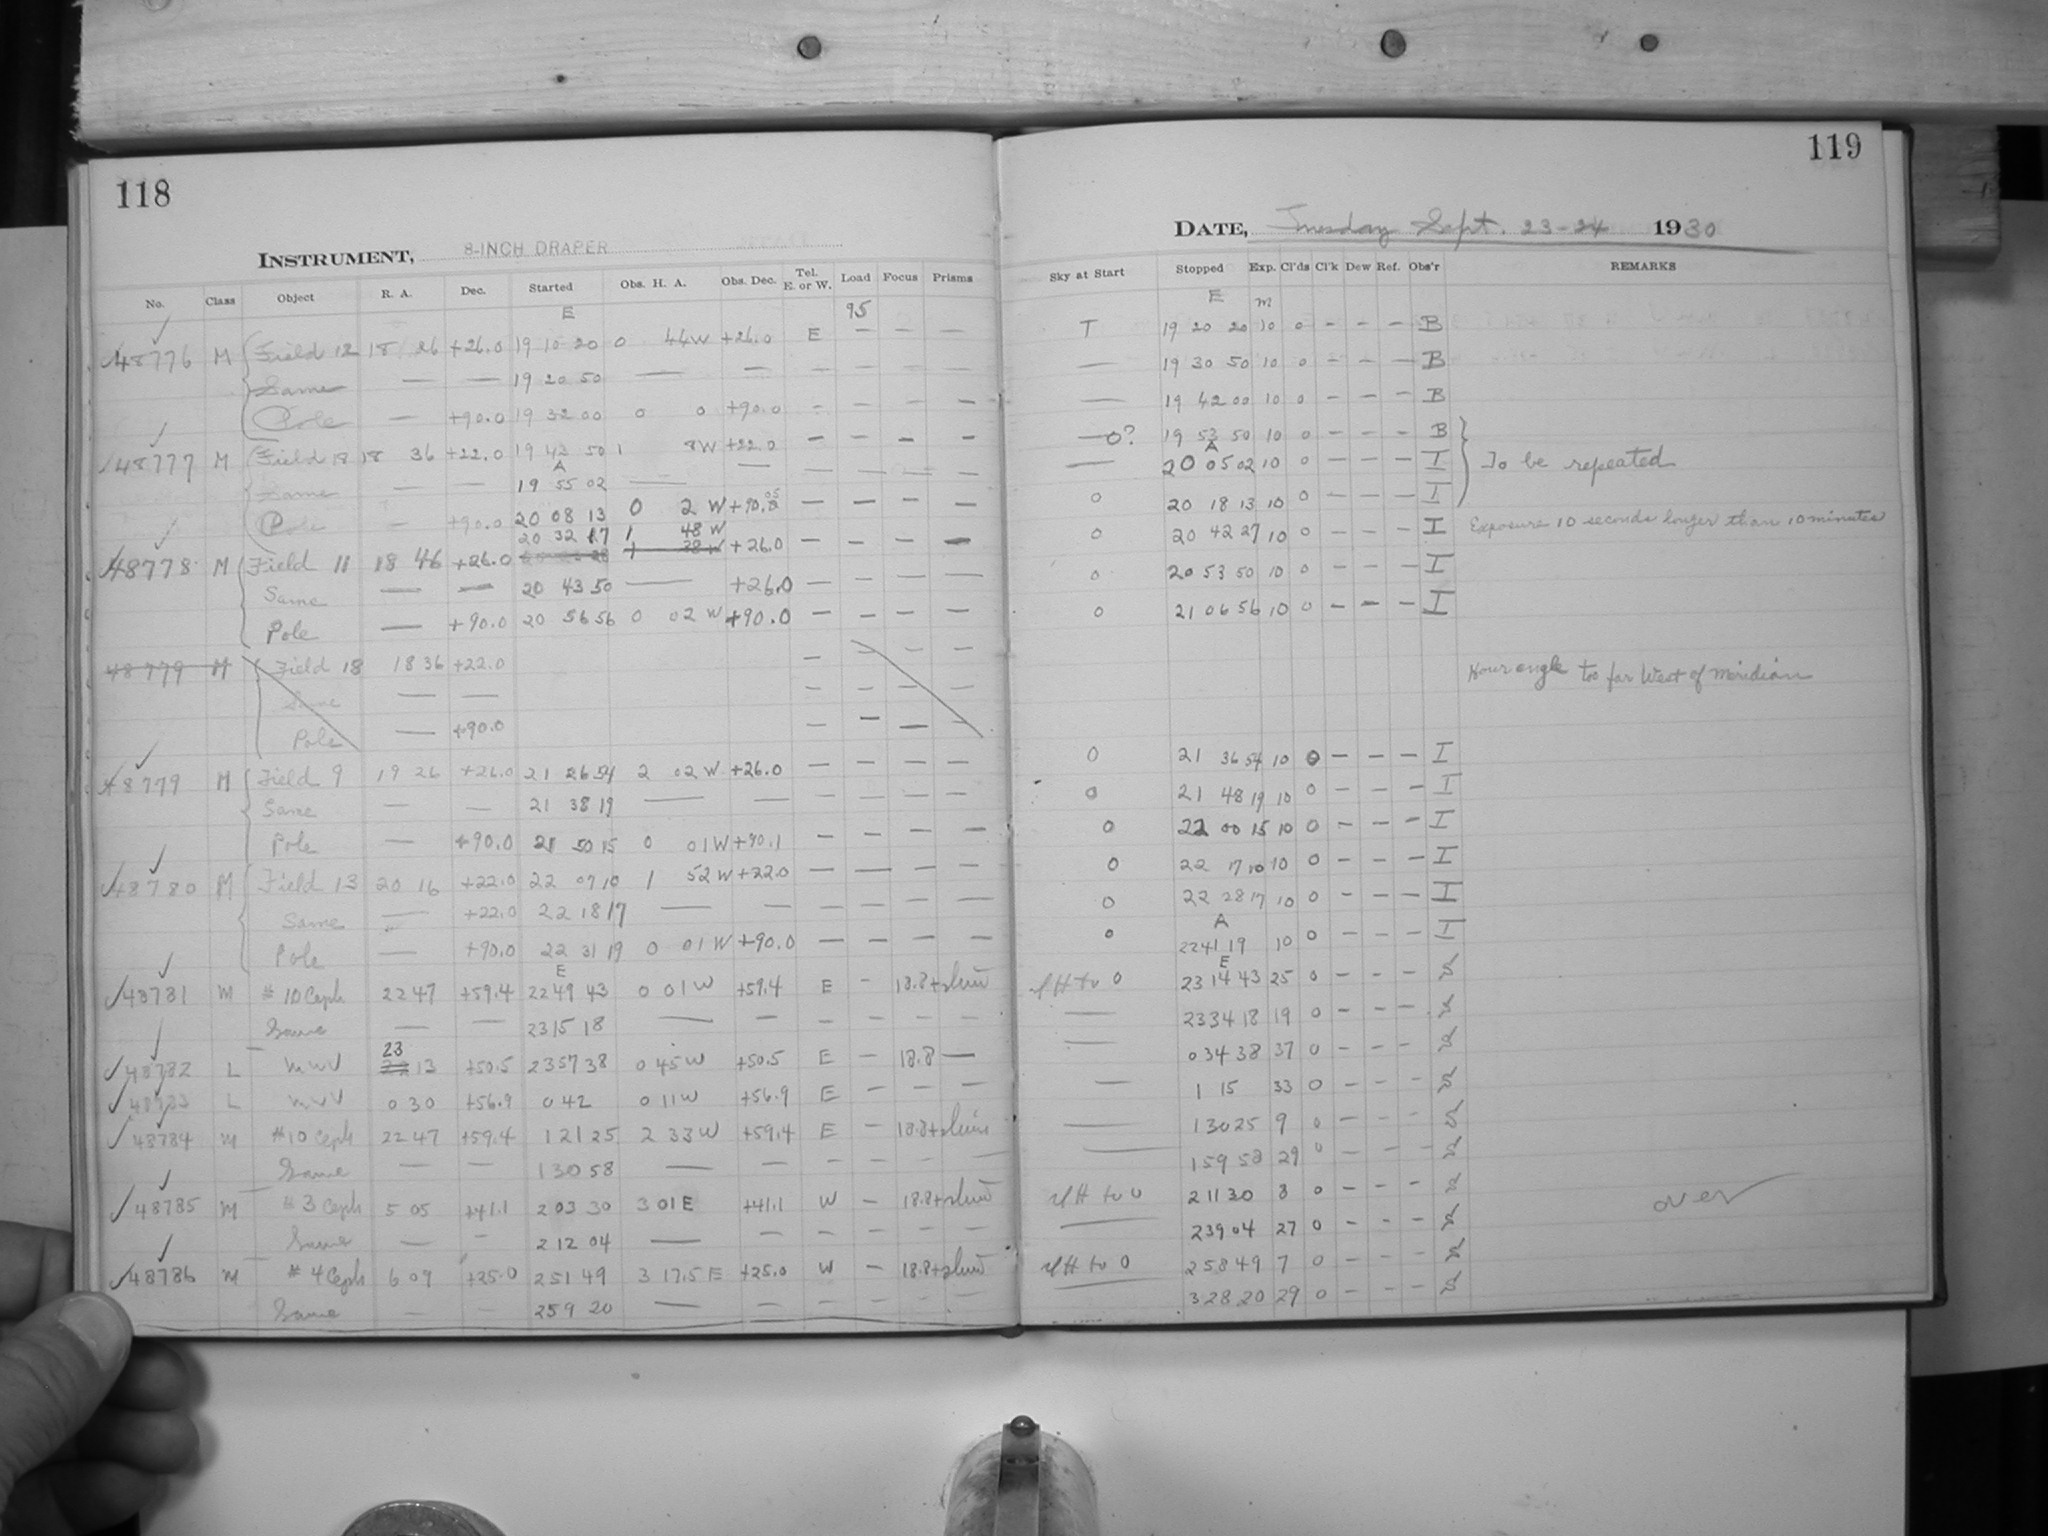 118
INSTRUMENT, 8-INCH DRAPER
No. Class Object R. A. Dec. Started Obs. H. A. Obs. Dec. Tel. E. or W. Load Focus Prisms
E 95
48776 M Field 12 18 26 +26.0 19 10 20 0 44W +26.0 E — — —
Same — — 19 20 50 — — — — — —
Pole — +90.0 19 32 00 0 0 +90.0 — — — —
48777 M Field 18 18 36 +22.0 19 43 50 1 8W +22.0 — — — —
A
Same — — 19 55 02 — — — — — —
Pole — +90.0 20 08 13 0 2 W +90.05 — — — —
20 32 17 1 48 W
48778 M Field 11 18 46 +26.0 +26.0 — — — —
Same — — 20 43 50 — +26.0 — — — —
Pole — +90.0 20 56 56 0 02 W +90.0 — — — —
48779 M Field 18 18 36 +22.0 — — — —
Same — — — — — —
Pole — +90.0 — — — —
48779 M Field 9 19 26 +26.0 21 26 54 2 02 W +26.0 — — — —
Same — — 21 38 19 — — — — — —
Pole — +90.0 21 50 15 0 01 W +90.1 — — — —
48780 M Field 13 20 16 +22.0 22 07 10 1 52 W +22.0 — — — —
Same — +22.0 22 18 17 — — — — — —
Pole — +90.0 22 31 19 0 01 W +90.0 — — — —
E
48781 M #10 Ceph 22 47 +59.4 22 49 43 0 01 W +59.4 E — 18.8+
Same — — 23 15 18 — — — — — —
23
48782 L MWV 22 13 +50.5 23 57 38 0 45 W +50.5 E — 18.8 —
48783 L MWV 0 30 +56.9 0 42 0 11 W +56.9 E — — —
48784 M #10 Ceph 22 47 +59.4 1 21 25 2 33 W +59.4 E — 18.8+
Same — — 1 30 58 — — — — — —
48785 M #3 Ceph 5 05 +41.1 2 03 30 3 01 E +41.1 W — 18.8+
Same — — 2 12 04 — — — — — —
48786 M #4 Ceph 6 09 +25.0 2 51 49 3 17.5 E +25.0 W — 18.8+
Same — — 2 59 20 — — — — — —
119
DATE, Tuesday Sept. 23-24 1930
Sky at Start Stopped Exp. Cl'ds Cl'k Dew Ref. Obs'r REMARKS
E m
T 19 20 20 10 0 — — — B
— 19 30 50 10 0 — — — B
— 19 42 00 10 0 — — — B
—0? 19 53 50 10 0 — — — B
A
— 20 05 02 10 0 — — — I To be repeated
0 20 18 13 10 0 — — — I
0 20 42 27 10 0 — — — I Exposure 10 seconds longer than 10 minutes
0 20 53 50 10 0 — — — I
0 21 06 56 10 0 — — — I
Hour angle too far West of Meridian
0 21 36 54 10 0 — — — I
0 21 48 19 10 0 — — — I
0 22 00 15 10 0 — — — I
0 22 17 10 10 0 — — — I
0 22 28 17 10 0 — — — I
A
0 22 41 19 10 0 — — — I
E
to 0 23 14 43 25 0 — — —
— 23 34 18 19 0 — — —
— 0 34 38 37 0 — — —
— 1 15 33 0 — — —
— 1 30 25 9 0 — — —
— 1 59 58 29 0 — — —
to 0 2 11 30 8 0 — — —
— 2 39 04 27 0 — — —
over
to 0 2 58 49 7 0 — — —
— 3 28 20 29 0 — — —